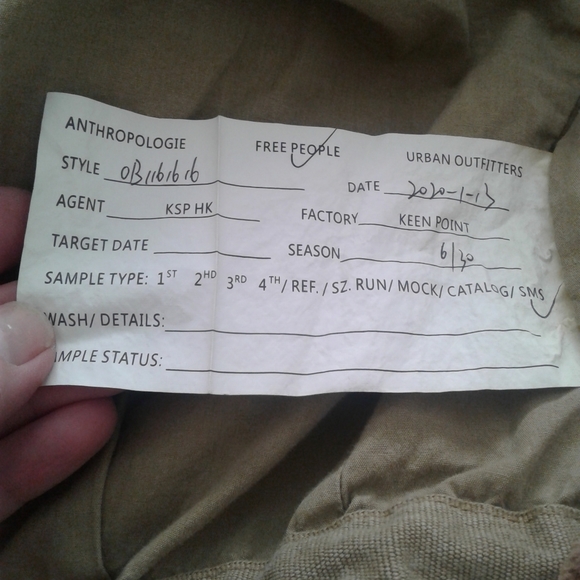 ANTHROPOLOGIE FREE PEOPLE URBAN OUTFITTERS
STYLE OB1161616 DATE 2020-1-13
AGENT KSP HK FACTORY KEEN POINT
TARGET DATE SEASON 6/30
SAMPLE TYPE: 1ST 2HD 3RD 4TH/ REF. / SZ. RUN/ MOCK/ CATALOG/ SMS
WASH/ DETAILS:
AMPLE STATUS: